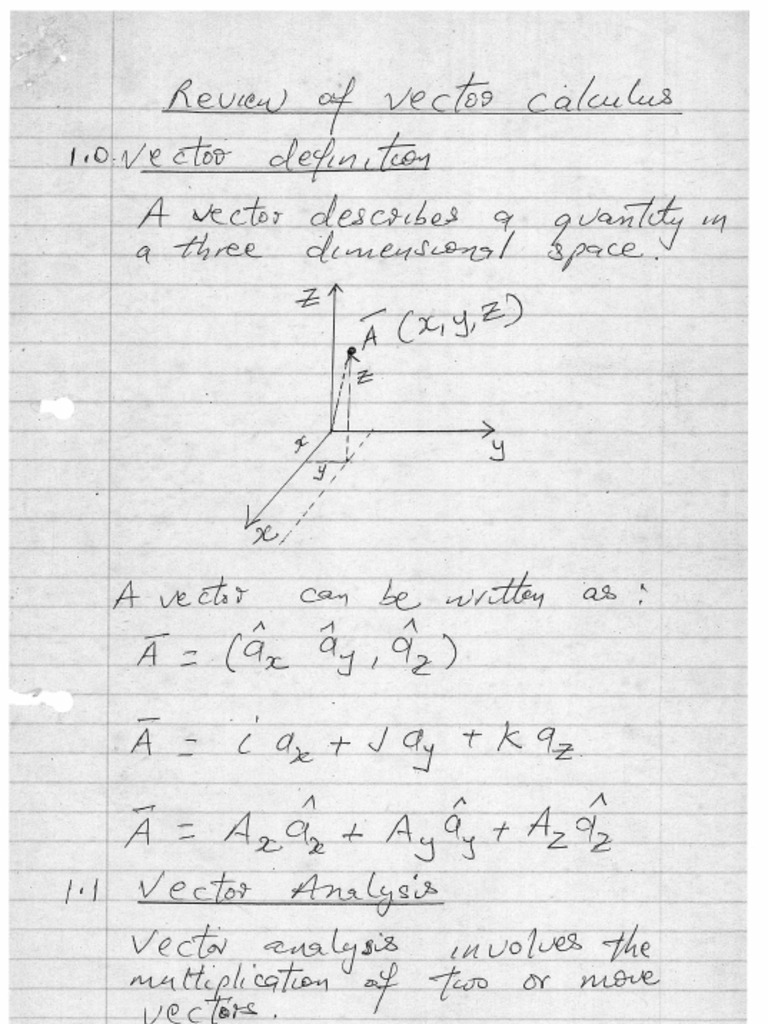 Review of vector calculus
1.0. Vector definition
A vector describes a quantity in
a three dimensional space.
z
Ā (x, y, z)
z
x
y
y
x
A vector can be written as :
Ā = (âx ây, âz)
Ā = i ax + J ay + K az
Ā = Ax âx + Ay ây + Az âz
1.1 Vector Analysis
Vector analysis involves the
multiplication of two or move
vectors.